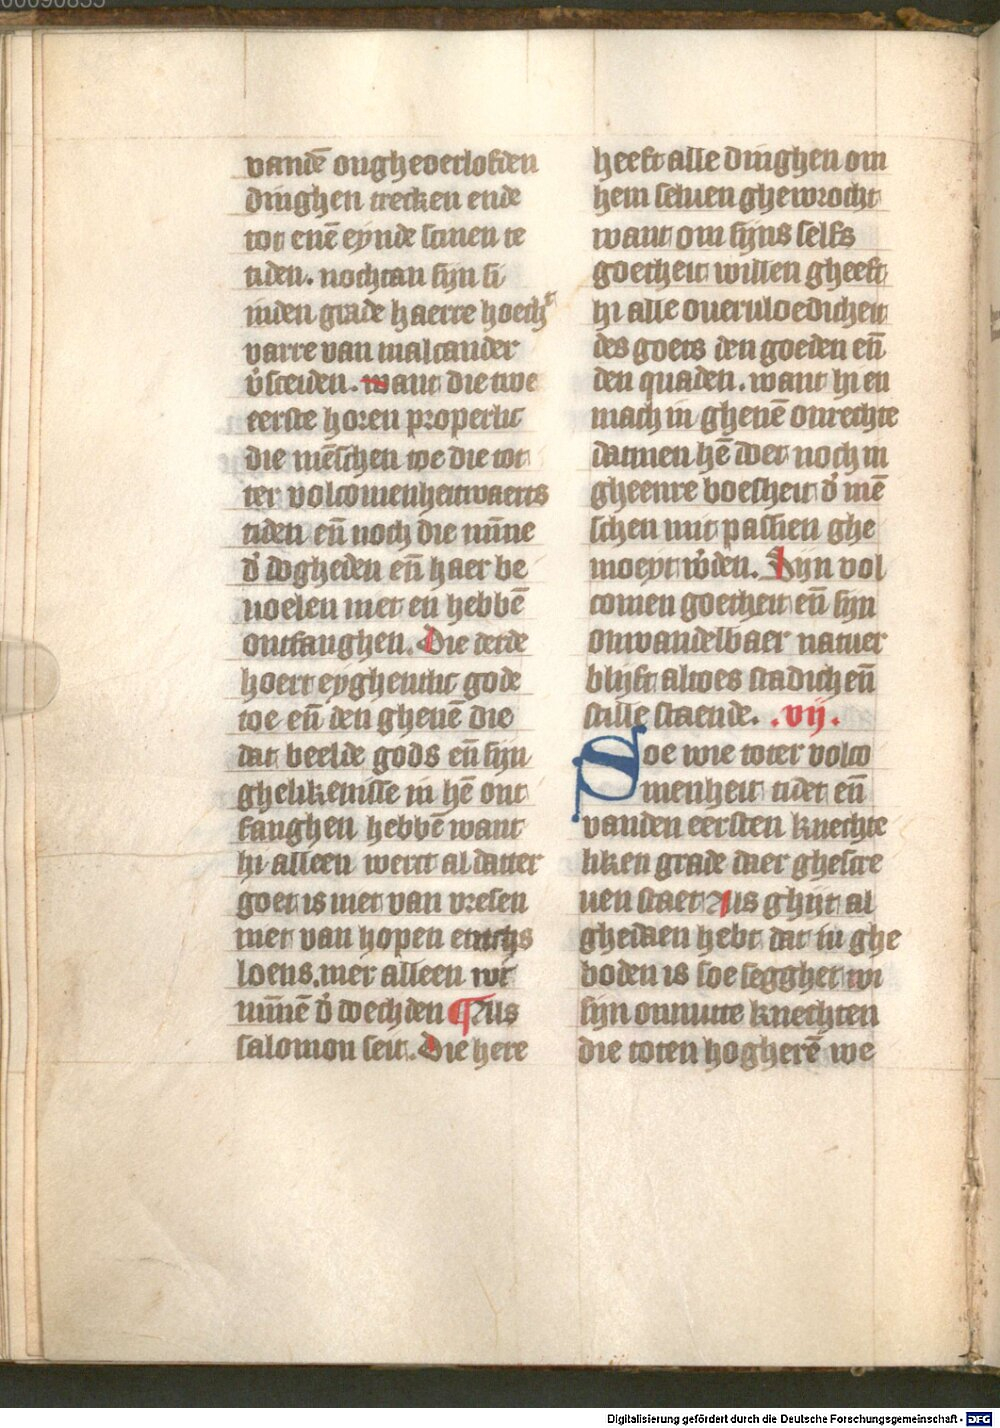 vandē ongheoerlofden
dinghen trecken ende
tot enē eynde scinen te
tiden. nochtan sijn si
inden grade haerre hoech
varre van malcander
v̓sceiden. want die twe
eerste horen properlic
die mēschen toe die tot
ter volcomenheitwaerts
tiden en̄ noch die mīne
d̓ dogheden en̄ haer be
uoelen niet en hebbē
ontfanghen. Die derde
hoert eyghentlic gode
toe en̄ den ghenē die
dat beelde gods en̄ sijn
ghelikenisse in hē ont
fanghen hebbē want
hi alleen werct al datter
goet is niet van vresen
niet van hopen
loens. mer alleen wt
minē d̓ doechden ¶ Als
salomon seit. Die here
heeft alle dinghen om
hem seluen ghewrocht
want om sijns selfs
goetheit willen gheeft
hi alle oueruloedicheit
des goets den goeden en̄
den quaden. want hi en
mach in ghenē onrechte
datmen hē doet noch in
gheenre boesheit d̓ mē
schen mit passien ghe
moeyt w̓den. Sijn vol
comen goetheit en̄ sijn
onwandelbaer natuer
blijft altoes stadich en̄
stille staende. .vij.
Soe wie toter volco
menheit tidet en̄
vanden eersten knechte
liken grade daer ghescre
uen staet Als ghijt al
ghedaen hebt dat iu ghe
boden is soe segghet wi
sijn onnutte knechten
die toten hogherē we
Digitalisierung gefördert durch die Deutsche Forschungsgemeinschaft - DFG